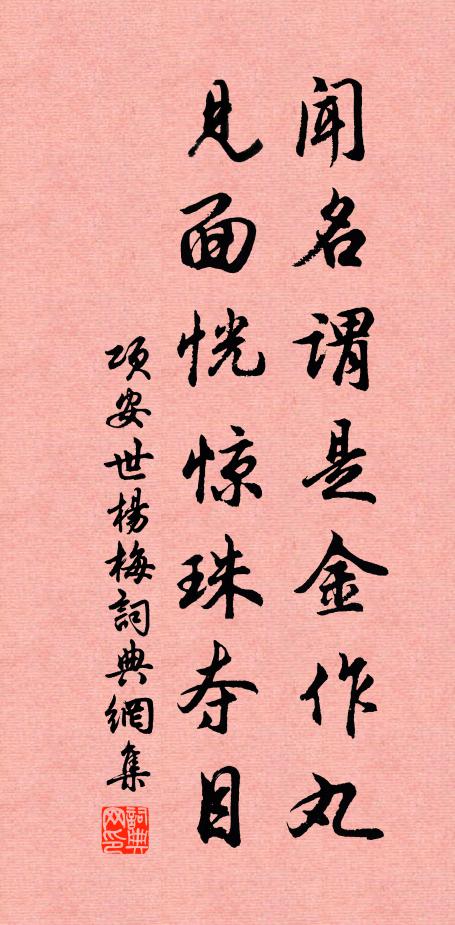 闻名谓是金作丸
见面恍惊珠夺目
项安世杨梅詞典網集
詞典网印